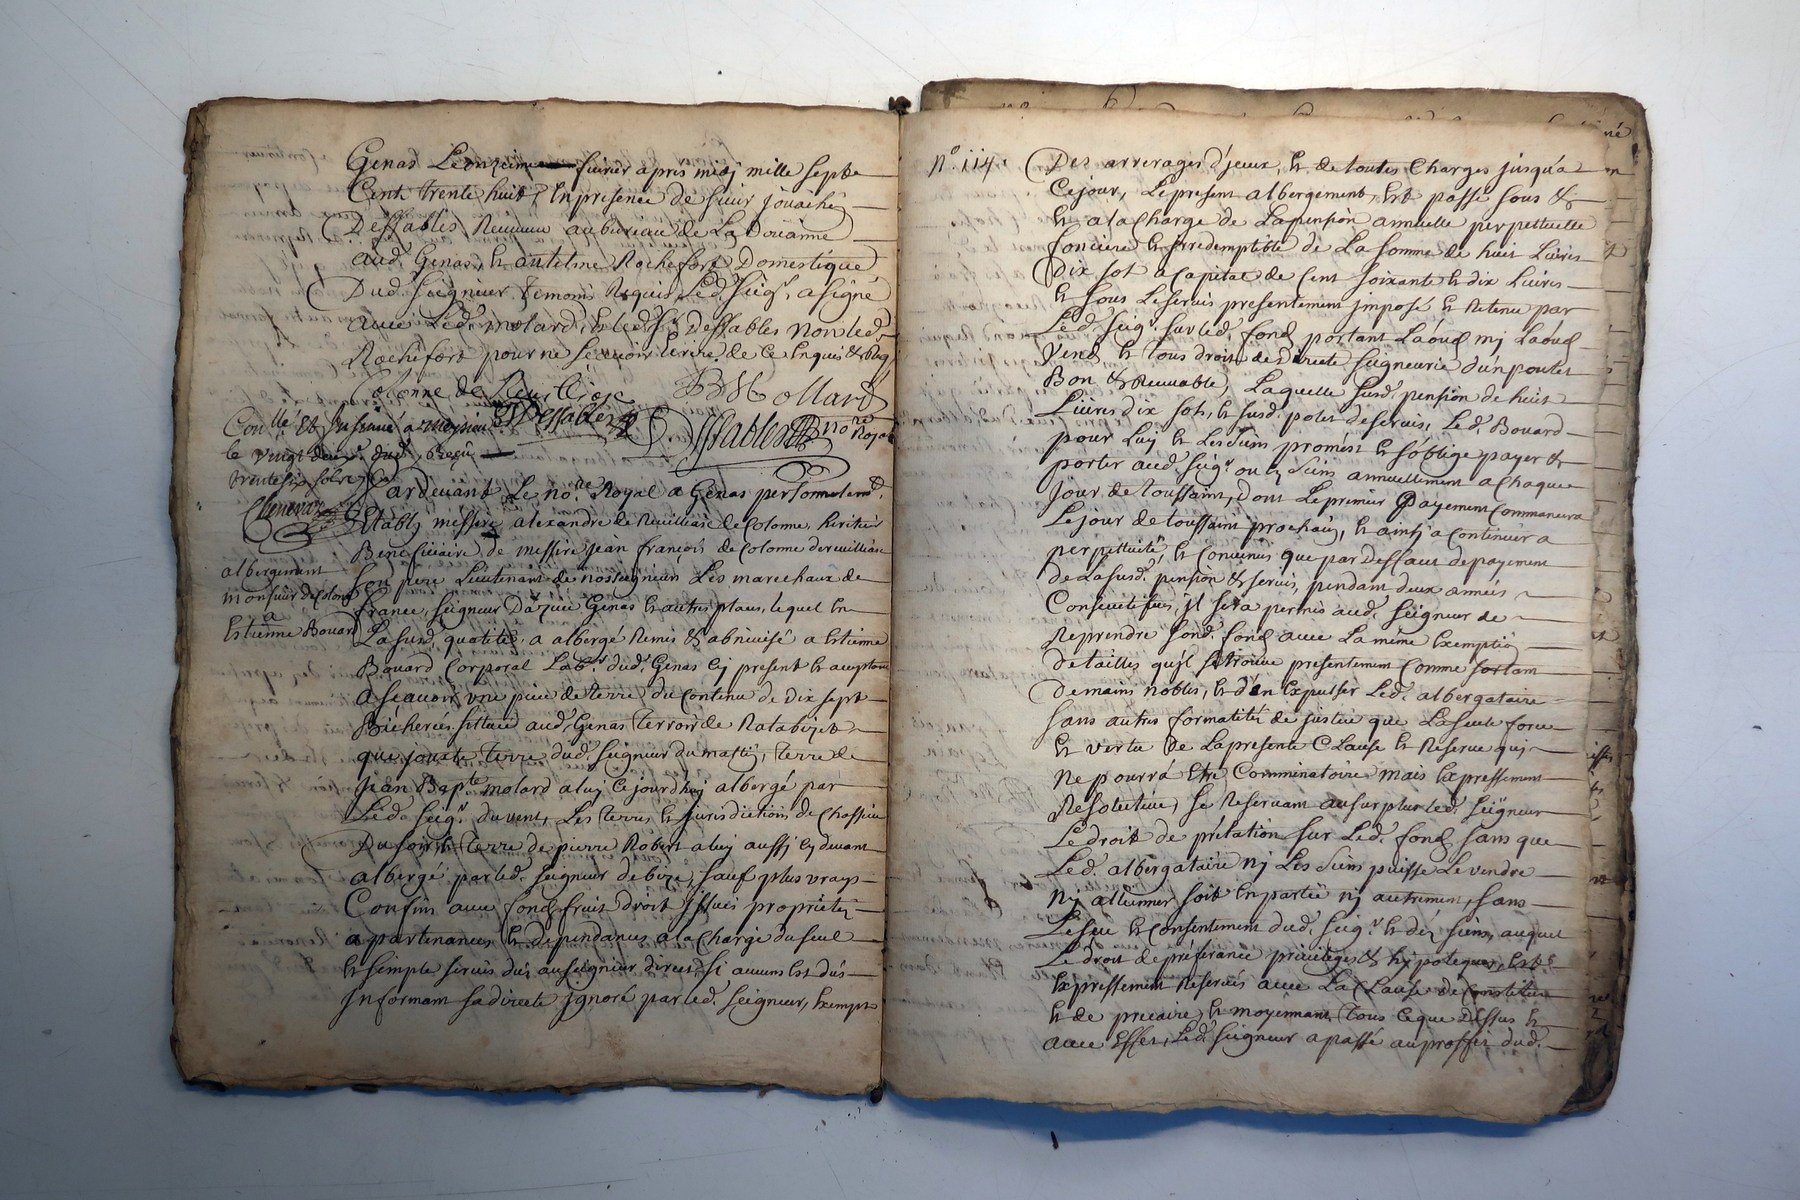 Genas Leonzieme fevrier apres midy mille septe
Cent trente huit, En presence de sieur joüachin
Deffables, Receveur au bureau de La Doüanne
aud. Genas, & antelme Rochefort Domestique
Dud. seigneur temoins Requis Led. seigr. a signé
avec Led. molard, & led. Sr. Deffables non led.
Rochefort pour ne scavoir écrire de ce Enquis & Req.
Colonne de
B Mollard
Deffables
Deffables
Nore Royal
Conllé et Insinué a
le vingt deux dud. Reçu
trente six sols
Chenevaz
Pardevant Le nore. Royal a Genas personnelement
Etably messire alexandre de Reuilliase de Colonne, heritier
Beneficiaire de messire jean françois de Colonne de reuilliase
albergement
monsieur de Colonne
a
Estienne Boüard
son pere Lieutenant de nosseigneurs Les marechaux de
france, seigneur D'azieu Genas & autres places, lequel En
La susd. quatité, a albergé Remis & abneuisé a Estienne
Boüard Corporal Labr. dud. Genas Cy present & acceptant
a scavoir une piece de terre du Contenu de Dix sept
Bicherées, sittuée aud. Genas Terroir de Ratabizet
que jouxte terre dud. seigneur du matin, terre de
jean Bapte. molard a luy Cejourd'huy albergé par
Led. seigr. du vent, Les terres & jurisdictions de Chassieu
Du soir & terre de pierre Robert a luy aussy Cy devant
albergé par led. seigneur de bize, sauf plus vrays
Confins avec fond fruit droit jssues proprietés
apartenances & Dependances a la Charge du seul
& simple servis dû au seigneur direct si aucuns Est dûs
Informant sa directe jgnoré par led. seigneur, Exempt
No. 114.
Des arrerages d'jceux, & de toutes Charges jusqu'a
Cejour, Le present albergement, Est passé sous &
& a la Charge de La pension annuelle perpettuelle
fonciere & jrredemptible de La somme de huit Livres
Dix sol a Capital de Cent soixante & dix Livres
& sous Le servis presentement jmposé & Retenu par
Led. seigr. sur led. fond, portant Laoud mj Laoud
Vend, & tous droit de directe seigneurie d'un poulet
Bon & Recevable, Laquelle susd. pension de huit
Livres dix sols, & susd. polet de servis, Led. Boüard
pour Luy & Les siens promest & s'oblige payer &
porter aud. seigr. ou es siens annuellement a Chaque
jour de toussaint, Dont Le premier Payement Commancera
Le jour de toussaint prochain, & ainsy a Continuer a
perpettuité, & Convenus que par Deffaut de payement
de La susd. pension & servis, pendant deux années
Consecutifues, jl sera permis aud. seigneur de
Reprendre sond. fond avec La même Exemption
de tailles qu'jl se trouve presentement Comme sortant
De mains nobles, & d'en Expulser Led. albergataire
sans autres formalités de justice que La seule force
& vertu de La presente Clause & Reserve qui
Ne pourra Etre Comminatoire mais Expressement
Resolutive, se Reservant au surplus led. seigneur
Le droit de prélation sur Led. fond, sans que
Led. albergataire ny Les siens puisse Le vendre
Ny alliener soit En partie ny autrement, sans
Le sceu & Consentement dud. seigr. & des siens, auquel
Le droit de préférance privileges & hypoteques, Est
Expressement Reservés avec La Clause de Constitut
& de precaire, & moyennant Tous Ce que Dessus &
avec Effet, Led. seigneur a passé au proffit dud.